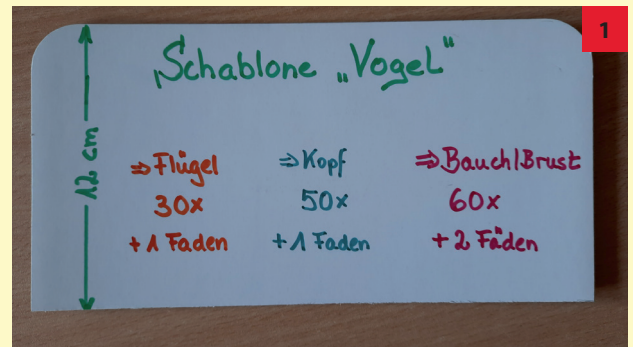 1
Schablone „Vogel“
12 cm
⇒ Flügel
30x
+ 1 Faden
⇒ Kopf
50x
+ 1 Faden
⇒ Bauch/Brust
60x
+ 2 Fäden